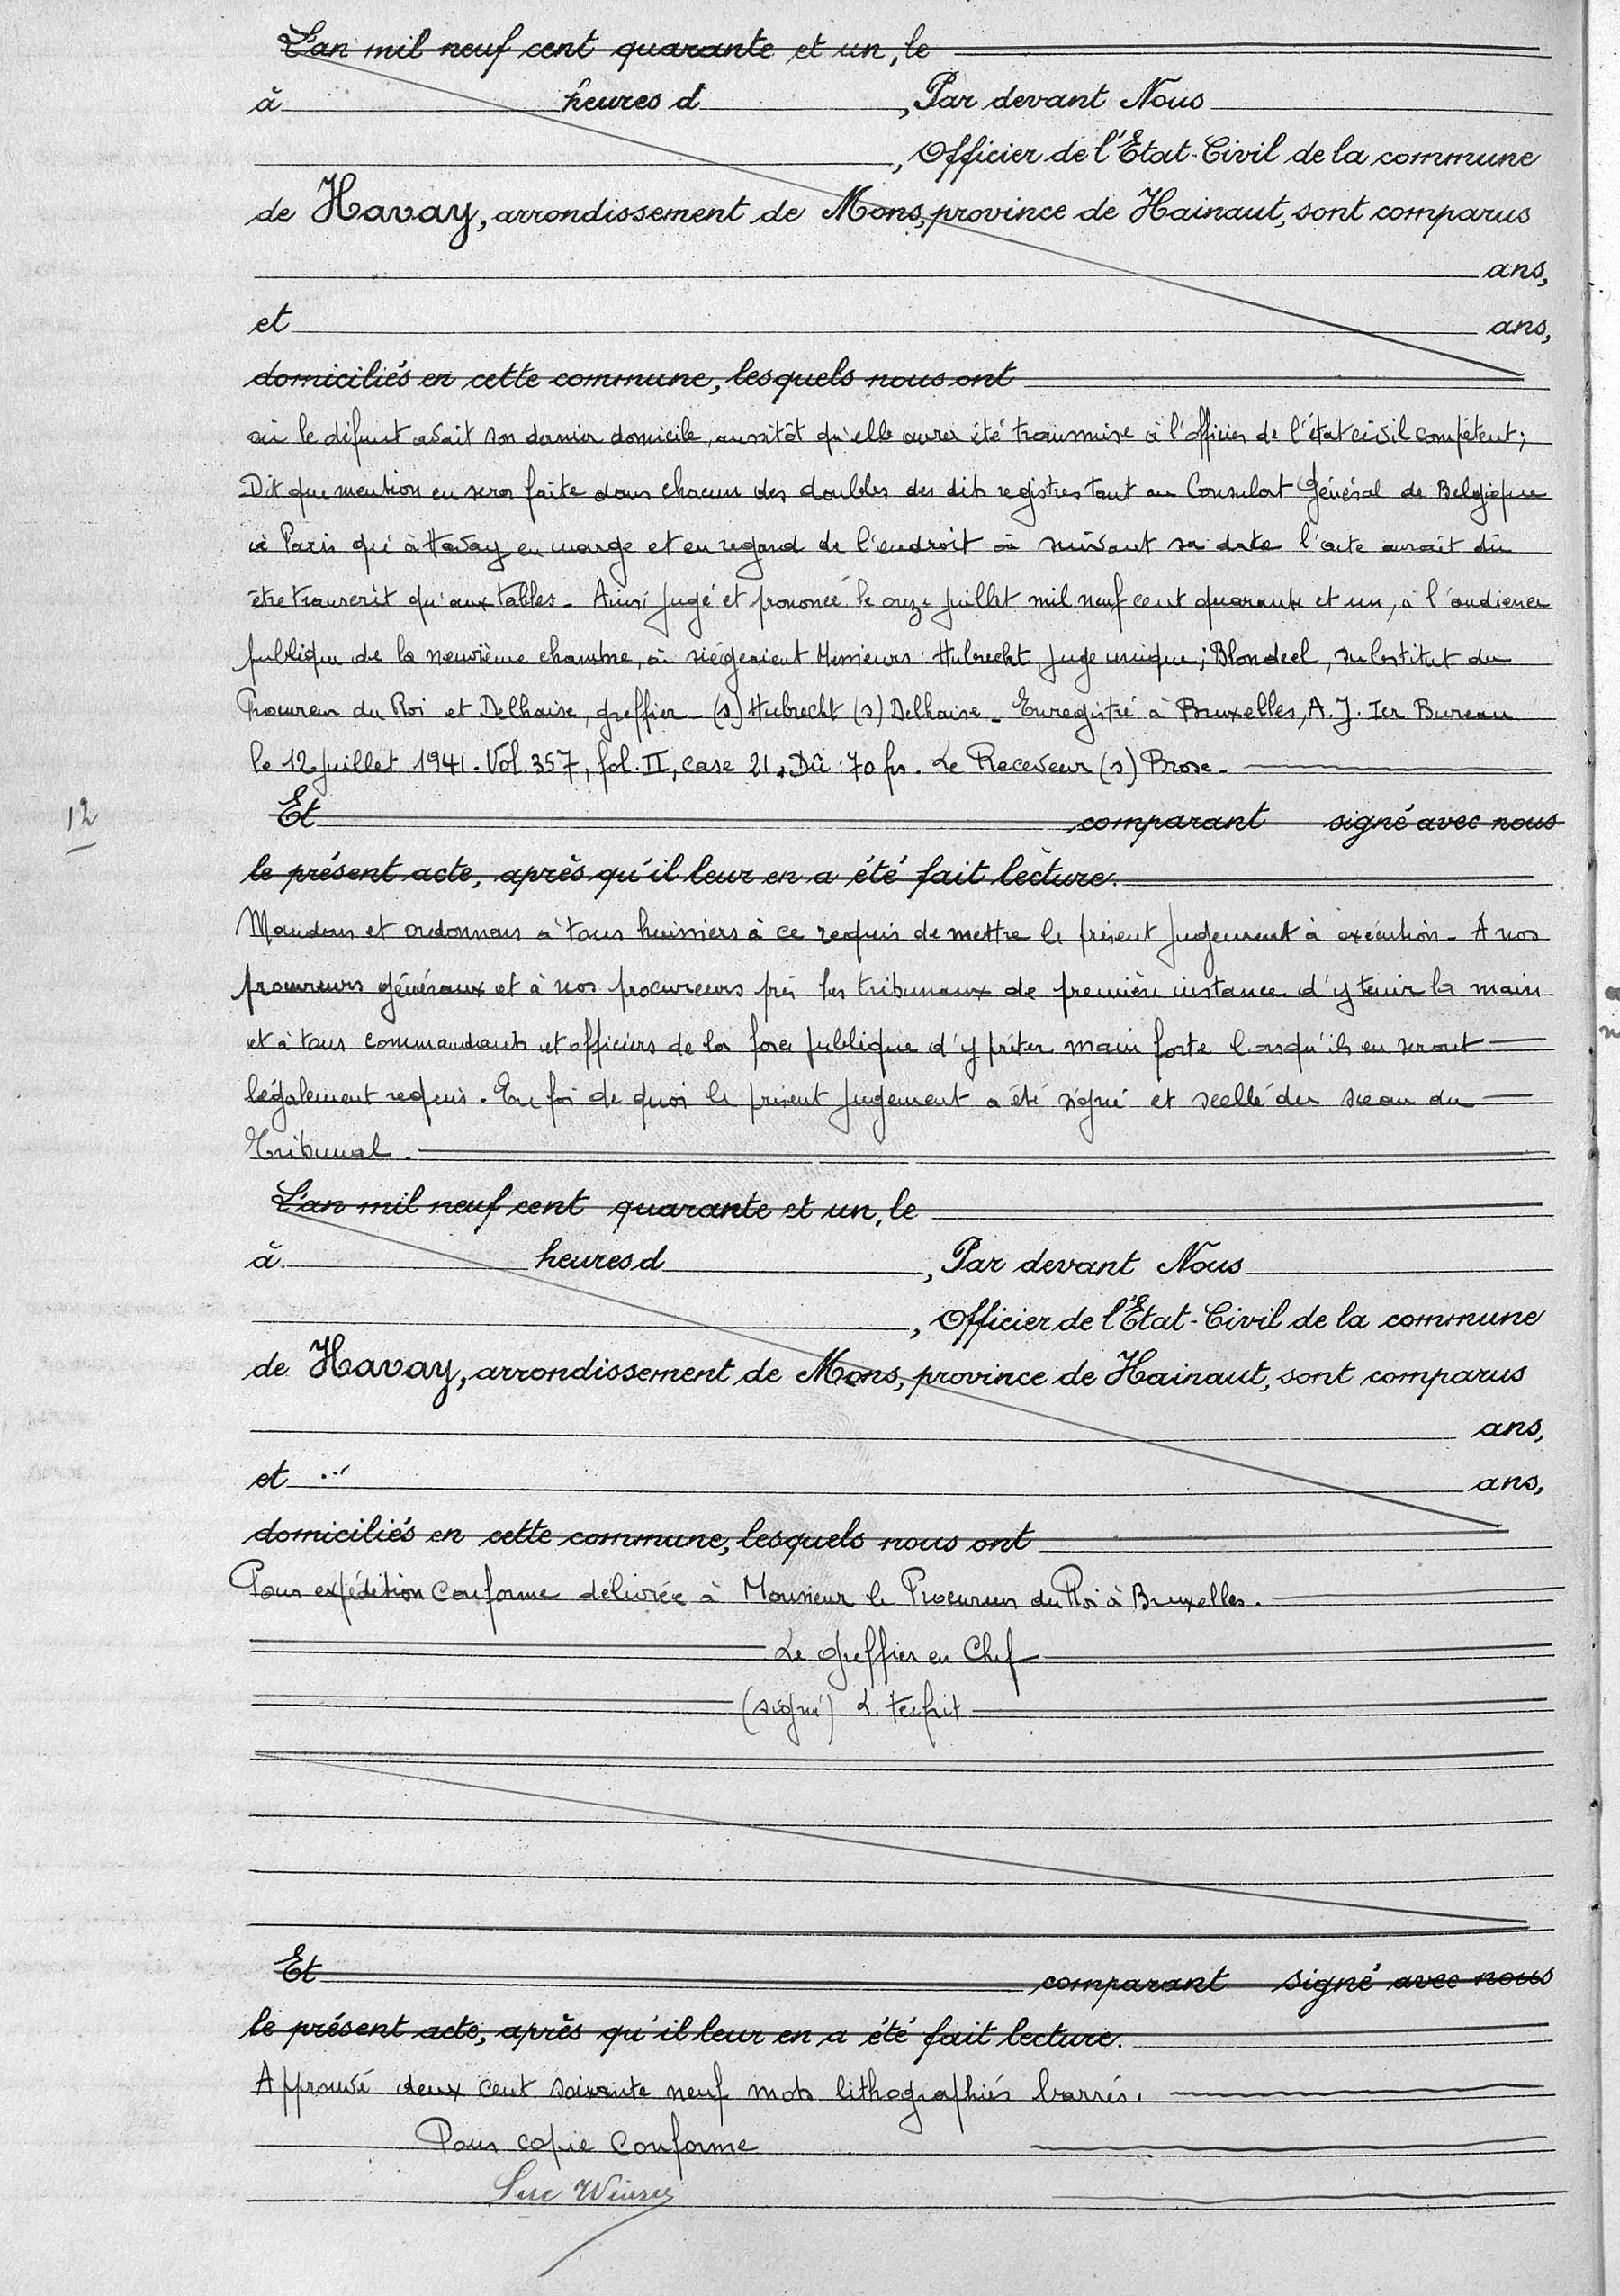 L'an mil neuf cent quarante et un, le
à heures d , Par devant Nous
, Officier de l'Etat-Civil de la commune
de Havay, arrondissement de Mons, province de Hainaut, sont comparus
ans,
et ans,
domiciliés en cette commune, lesquels nous ont
où le défunt avait son dernier domicile, aussitôt qu'elle aura été transmise à l'officier de l'état civil compétent;
Dit que mention en sera faite dans chacun des doubles des dits registres tant au Consulat Général de Belgique
à Paris qu'à Havay en marge et en regard de l'endroit où suivant sa date l'acte aurait dû
être transcrit qu'aux tables. Ainsi jugé et prononcé le onze juillet mil neuf cent quarante et un, à l'audience
publique de la neuvième chambre, où siégeaient Messieurs : Hubrecht juge unique; Blondeel, substitut du
Procureur du Roi et Delhaise, greffier - (s) Hubrecht (s) Delhaise - Enregistré à Bruxelles, A. J. Ier Bureau
le 12 juillet 1941. Vol. 357, fol. II, case 21. Dû : 70 frs. Le Receveur (s) Brose.
12
Et comparant signé avec nous
le présent acte, après qu'il leur en a été fait lecture.
Mandons et ordonnons à tous huissiers à ce requis de mettre le présent jugement à exécution - A nos
procureurs généraux et à nos procureurs près les tribunaux de première instance d'y tenir la main
et à tous commandants et officiers de la force publique d'y prêter main forte lorsqu'ils en seront
légalement requis. En foi de quoi le présent jugement a été signé et scellé du sceau du
Tribunal.
L'an mil neuf cent quarante et un, le
à heures d , Par devant Nous
, Officier de l'Etat-Civil de la commune
de Havay, arrondissement de Mons, province de Hainaut, sont comparus
ans,
et ans,
domiciliés en cette commune, lesquels nous ont
Pour expédition conforme délivrée à Monsieur le Procureur du Roi à Bruxelles.
Le Greffier en Chef
(signé) L.
Et comparant signé avec nous
le présent acte, après qu'il leur en a été fait lecture.
Approuvé deux cent soixante neuf mots lithographiés barrés.
Pour copie conforme
Luc